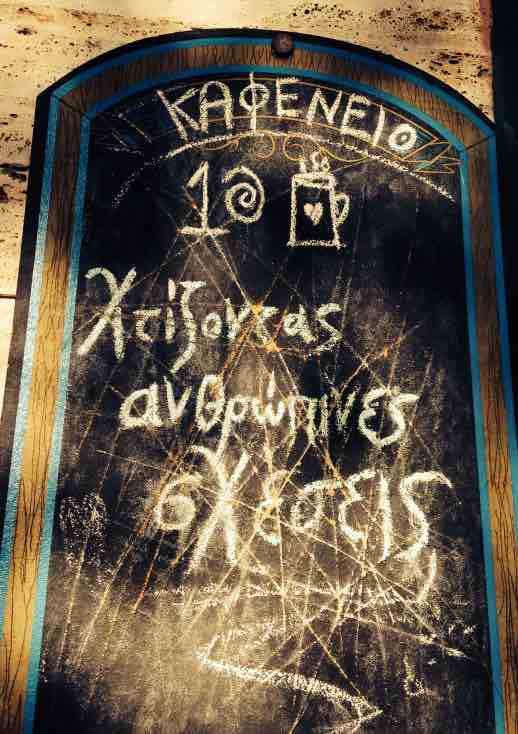 ΚΑΦΕΝΕΙΟ
1@
Χτίζοντας
ανθρώπινες
σχέσεις